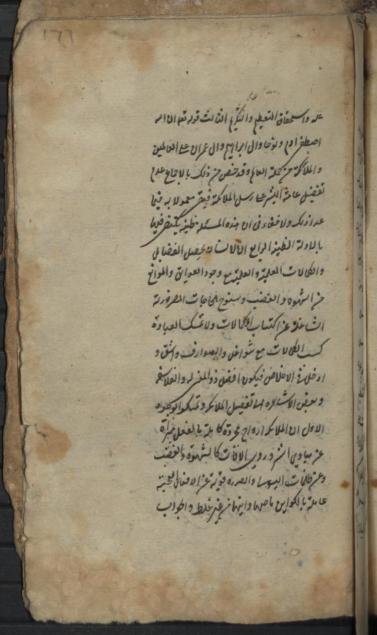 علمه واستحقاق التعظيم والتكريم الثالث قوله تعالى ان الله
اصطفى ادم ونوحا وال ابراهيم وال عمران على العالمين
والملائكة من جملة العالم وقد خص من ذلك بالاجماع عدم
تفضيل عامة البشر على رسل الملائكة فبقى معمولا به فيما
عدا ذلك ولا خفاء فى ان هذه المسئلة ظنية يكتفى فيها
بالادلة الظنية الرابع ان الانسان يحصل الفضايل
والكمالات العلمية والعملية مع وجود العوايق والموانع
من الشهوة والغضب وسنوح الحاجات الضرورية
الشاغلة عن اكتساب الكمالات ولا شك ان العبادة
كسب الكمالات مع شواغل والصوارف اشق و
ادخل فى الاخلاص فيكون افضل وذهب المعتزلة والفلاسفة
وبعض الاشاعرة الى تفضيل الملائكة وتمسكوا بوجوه
الاول ان الملائكة ارواح مجردة كاملة بالعقل مبراة
عن مبادى الشرور والافات كالشهوة والغضب
وعن ظلمات الهيولى والصورة قوية على الافعال العجيبة
عالمة بالكواين ماضيها واتيها من غير غلط والجواب